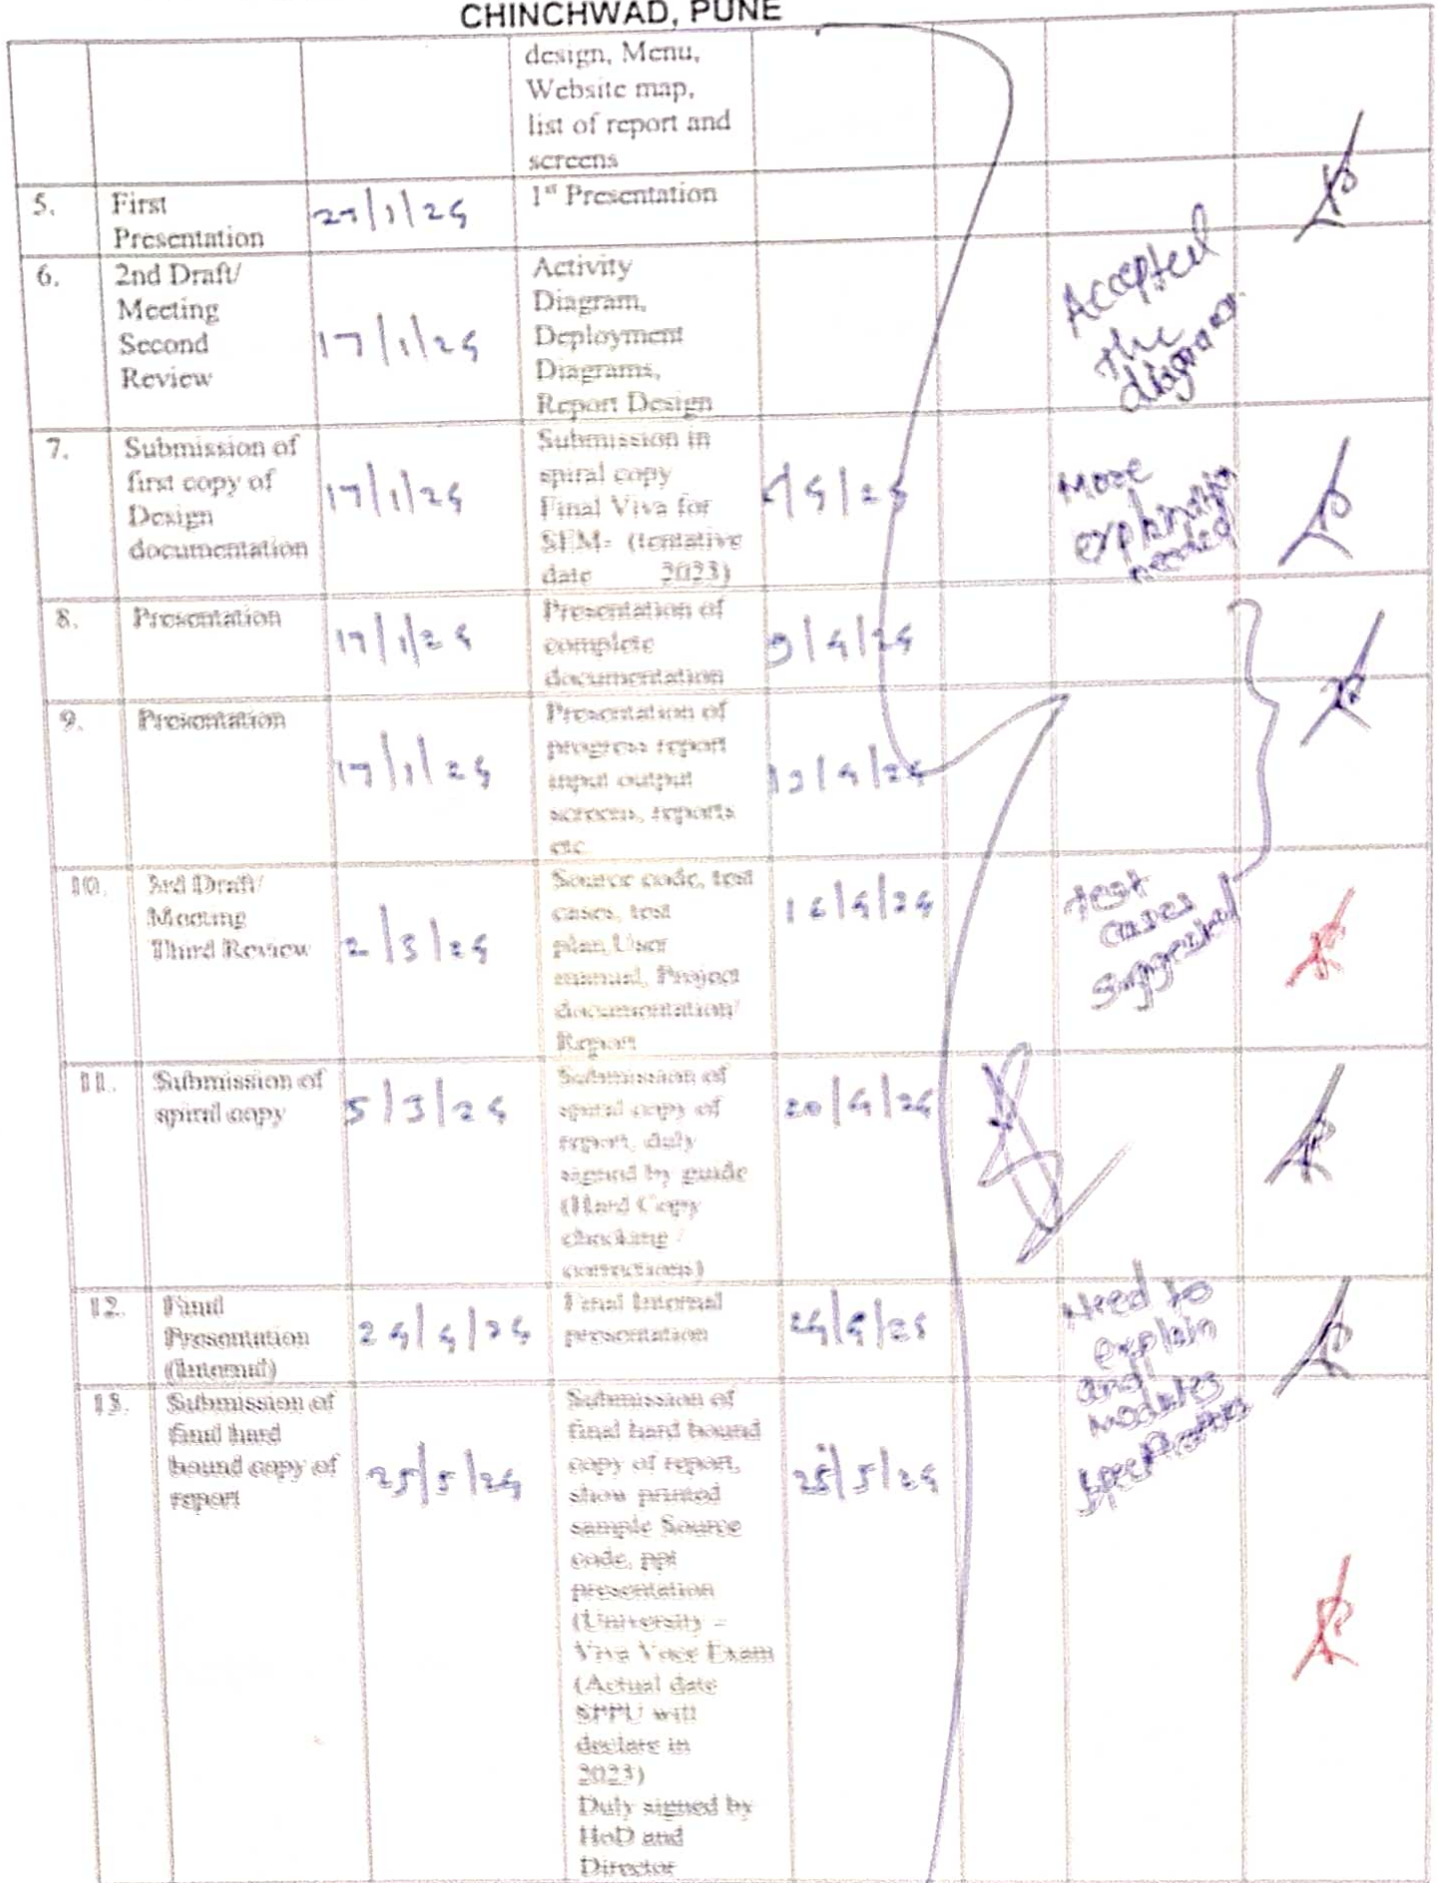 CHINCHWAD, PUNE
design, Menu,
Website map,
list of report and
screens
5.
First
Presentation
27/1/24
1st Presentation
6.
2nd Draft/
Meeting
Second
Review
17/1/24
Activity
Diagram,
Deployment
Diagrams,
Report Design
Accepted
the
diagram
7.
Submission of
first copy of
Design
documentation
17/1/24
Submission in
spiral copy
Final Viva for
SEM- (tentative
date 2023)
More
explanation
needed
8.
Presentation
17/1/24
Presentation of
complete
documentation
9/4/24
9.
Presentation
17/1/24
Presentation of
progress report
input output
screens, reports
etc.
12/4/24
10.
3rd Draft/
Meeting
Third Review
2/3/24
Source code, test
cases, test
plan,User
manual, Project
documentation/
Report
16/4/24
Test
cases
suggested
11.
Submission of
spiral copy
5/3/24
Submission of
spiral copy of
report, duly
signed by guide
(Hard Copy
checking /
corrections)
20/4/24
12.
Final
Presentation
(Internal)
24/4/24
Final Internal
presentation
24/4/24
Need to
explain
and
modules
specifications
13.
Submission of
final hard
bound copy of
report
25/5/24
Submission of
final hard bound
copy of report,
show printed
sample Source
code, ppt
presentation
(University –
Viva Voce Exam
(Actual date
SPPU will
declare in
2023)
Duly signed by
HoD and
Director
25/5/24